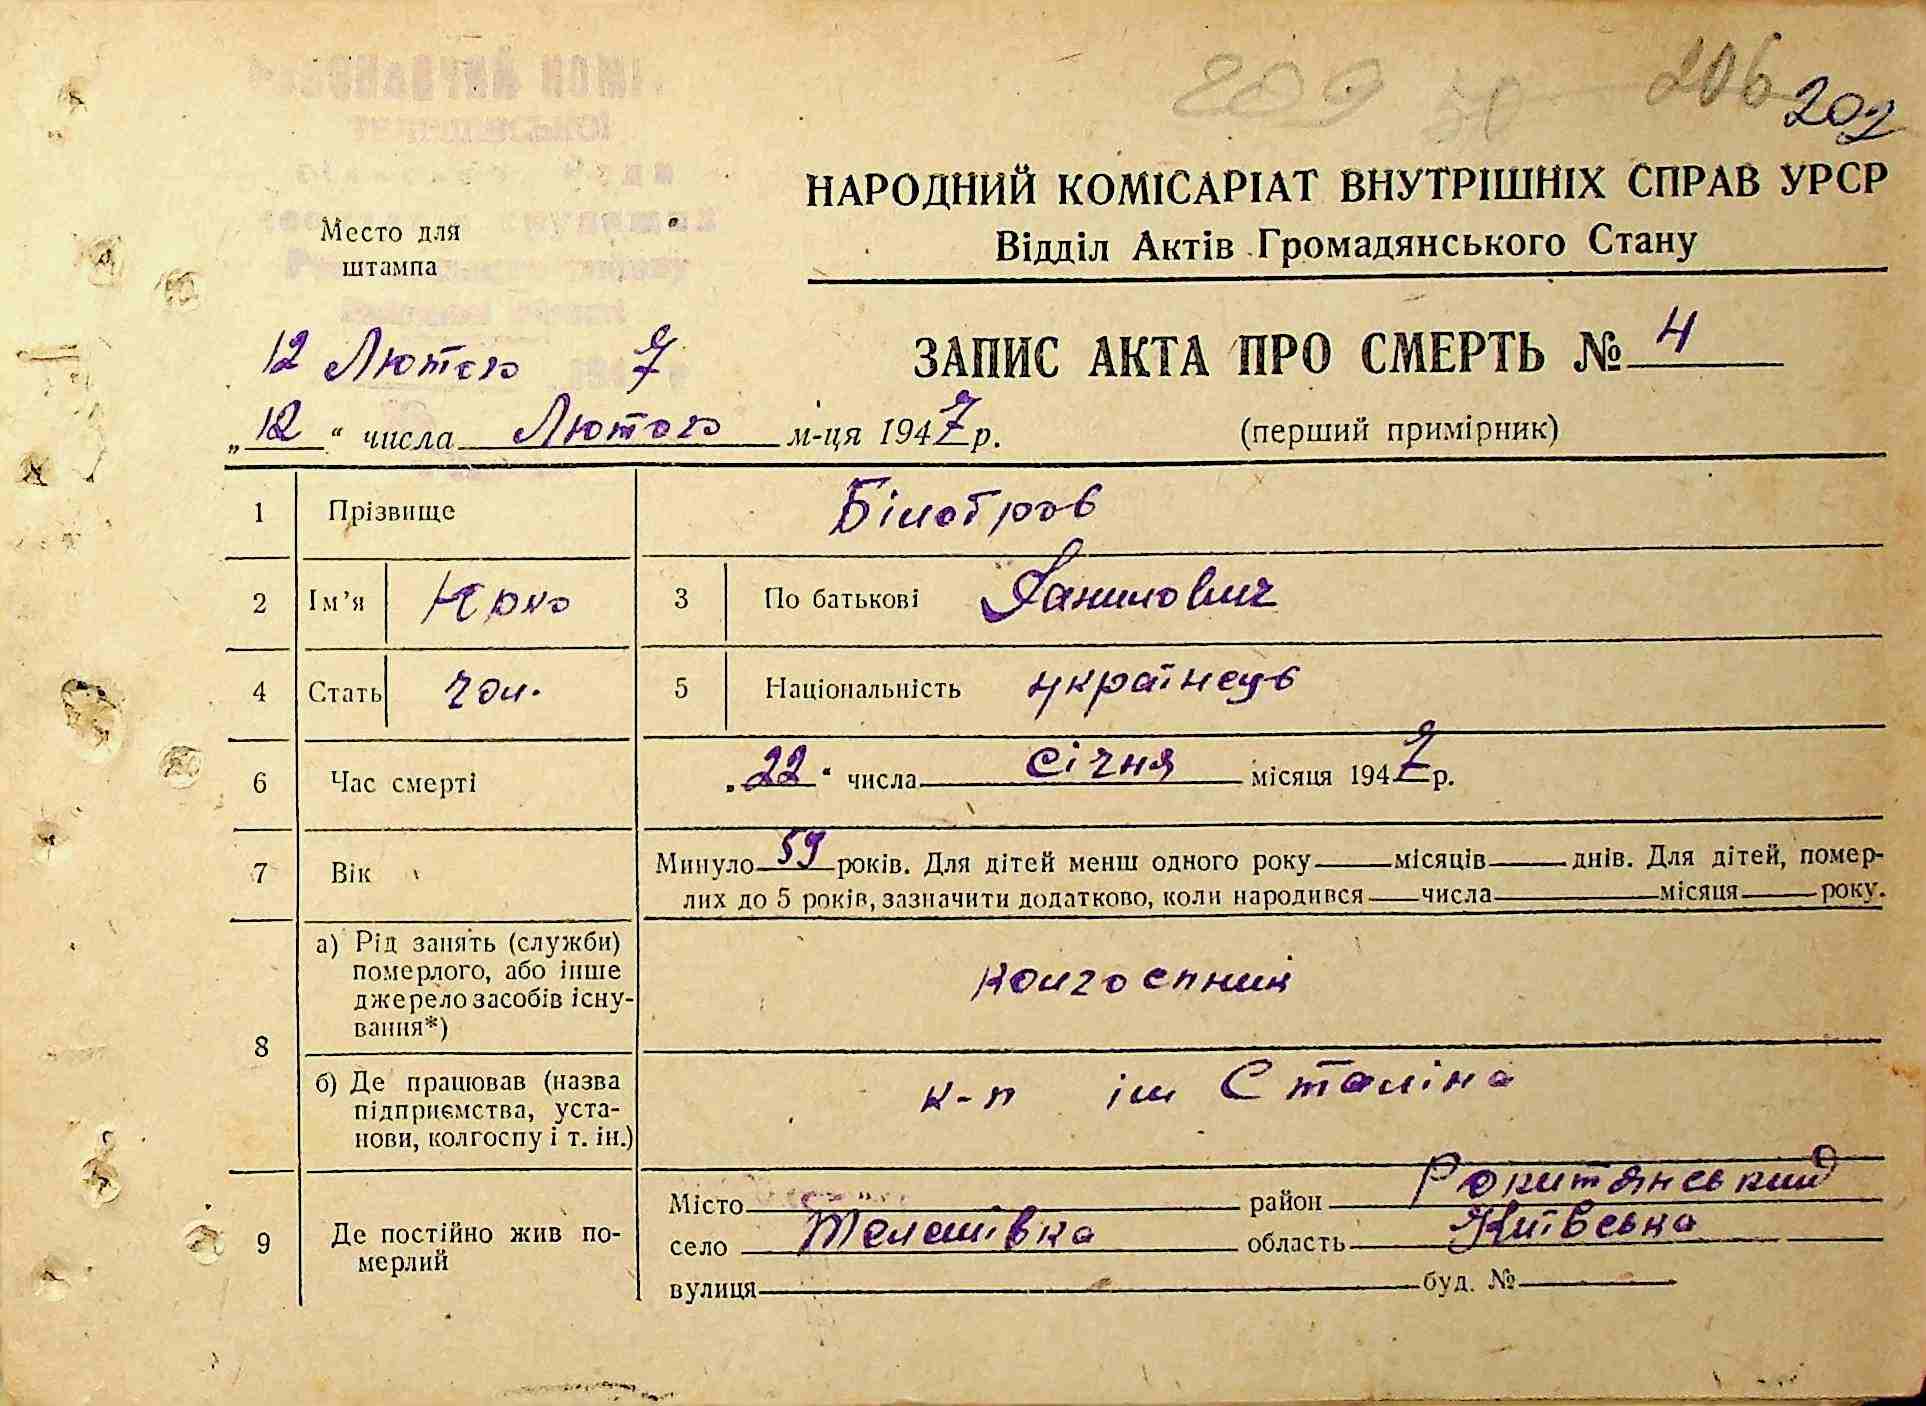 209 50 206 202
НАРОДНИЙ КОМІСАРІАТ ВНУТРІШНІХ СПРАВ УРСР
Відділ Актів Громадянського Стану
Место для
штампа
ЗАПИС АКТА ПРО СМЕРТЬ № 4
(перший примірник)
12 Лютого 7
„12“ числа Лютого м-ця 1947 р.
1 Прізвище Білобров
2 Ім’я 3 По батькові Данилович
4 Стать чол. 5 Національність українець
6 Час смерті „22“ числа січня місяця 1947 р.
7 Вік Минуло 59 років. Для дітей менш одного року місяців днів. Для дітей, помер-
лих до 5 років, зазначити додатково, коли народився числа місяця року.
8 а) Рід занять (служби)
померлого, або інше
джерело засобів існу-
вання*)
колгоспник
б) Де працював (назва
підприємства, уста-
нови, колгоспу і т. ін.)
к-п ім Сталіна
9 Де постійно жив по-
мерлий
Місто район Рокитянський
село Телешівка область Київська
вулиця буд. №